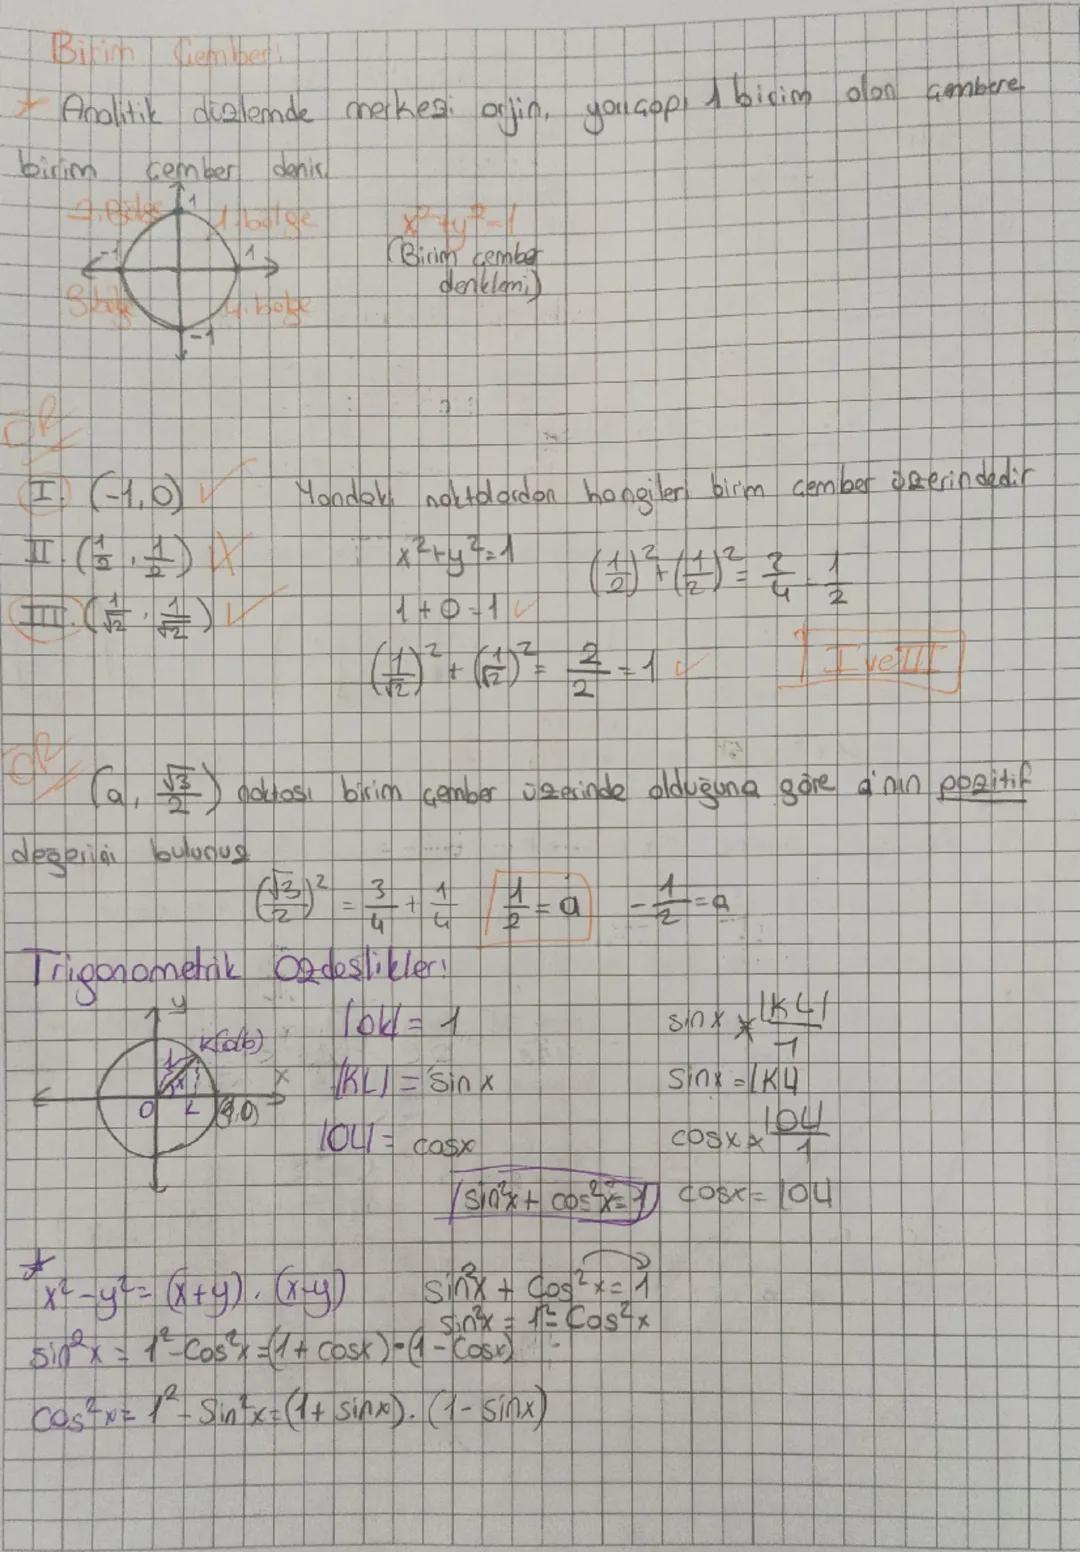 Birim Çember:
* Analitik düzlemde merkezi orjin, yarıçapı 1 birim olan çembere
birim çember denir.
2. Bölge 1 1. bölge
x²+y²=1
-1 1
(Birim çember
denklemi)
3. bölge 4. bölge
-1
ÖR
I. (-1,0) ✓ Yandaki noktalardan hangileri birim çember üzerindedir
II. (1/2, 1/2) X x²+y²=1 (1/2)²+(1/2)²=2/4=1/2
III. (1/√2, 1/√2) ✓ 1+0=1 ✓
(1/√2)²+(1/√2)²=2/2=1 ✓ I ve III
ÖR
(a, √3/2) noktası birim çember üzerinde olduğuna göre a'nın pozitif
değerini bulunuz
(√3/2)²=3/4+1/4 1/2=a -1/2=a
Trigonometrik Özdeşlikler:
y |OK|=1 sinx=|KL|/1
K(a,b)
1 x
x |KL|=sinx sinx=|KL|
O L (1,0)
|OL|=cosx cosx=|OL|/1
sin²x+cos²x=1 cosx=|OL|
* x²-y²=(x+y).(x-y) sin²x+cos²x=1
sin²x=1²-Cos²x
sin²x=1²-Cos²x=(1+cosx)·(1-Cosx)
cos²x=1²-Sin²x=(1+sinx).(1-sinx)